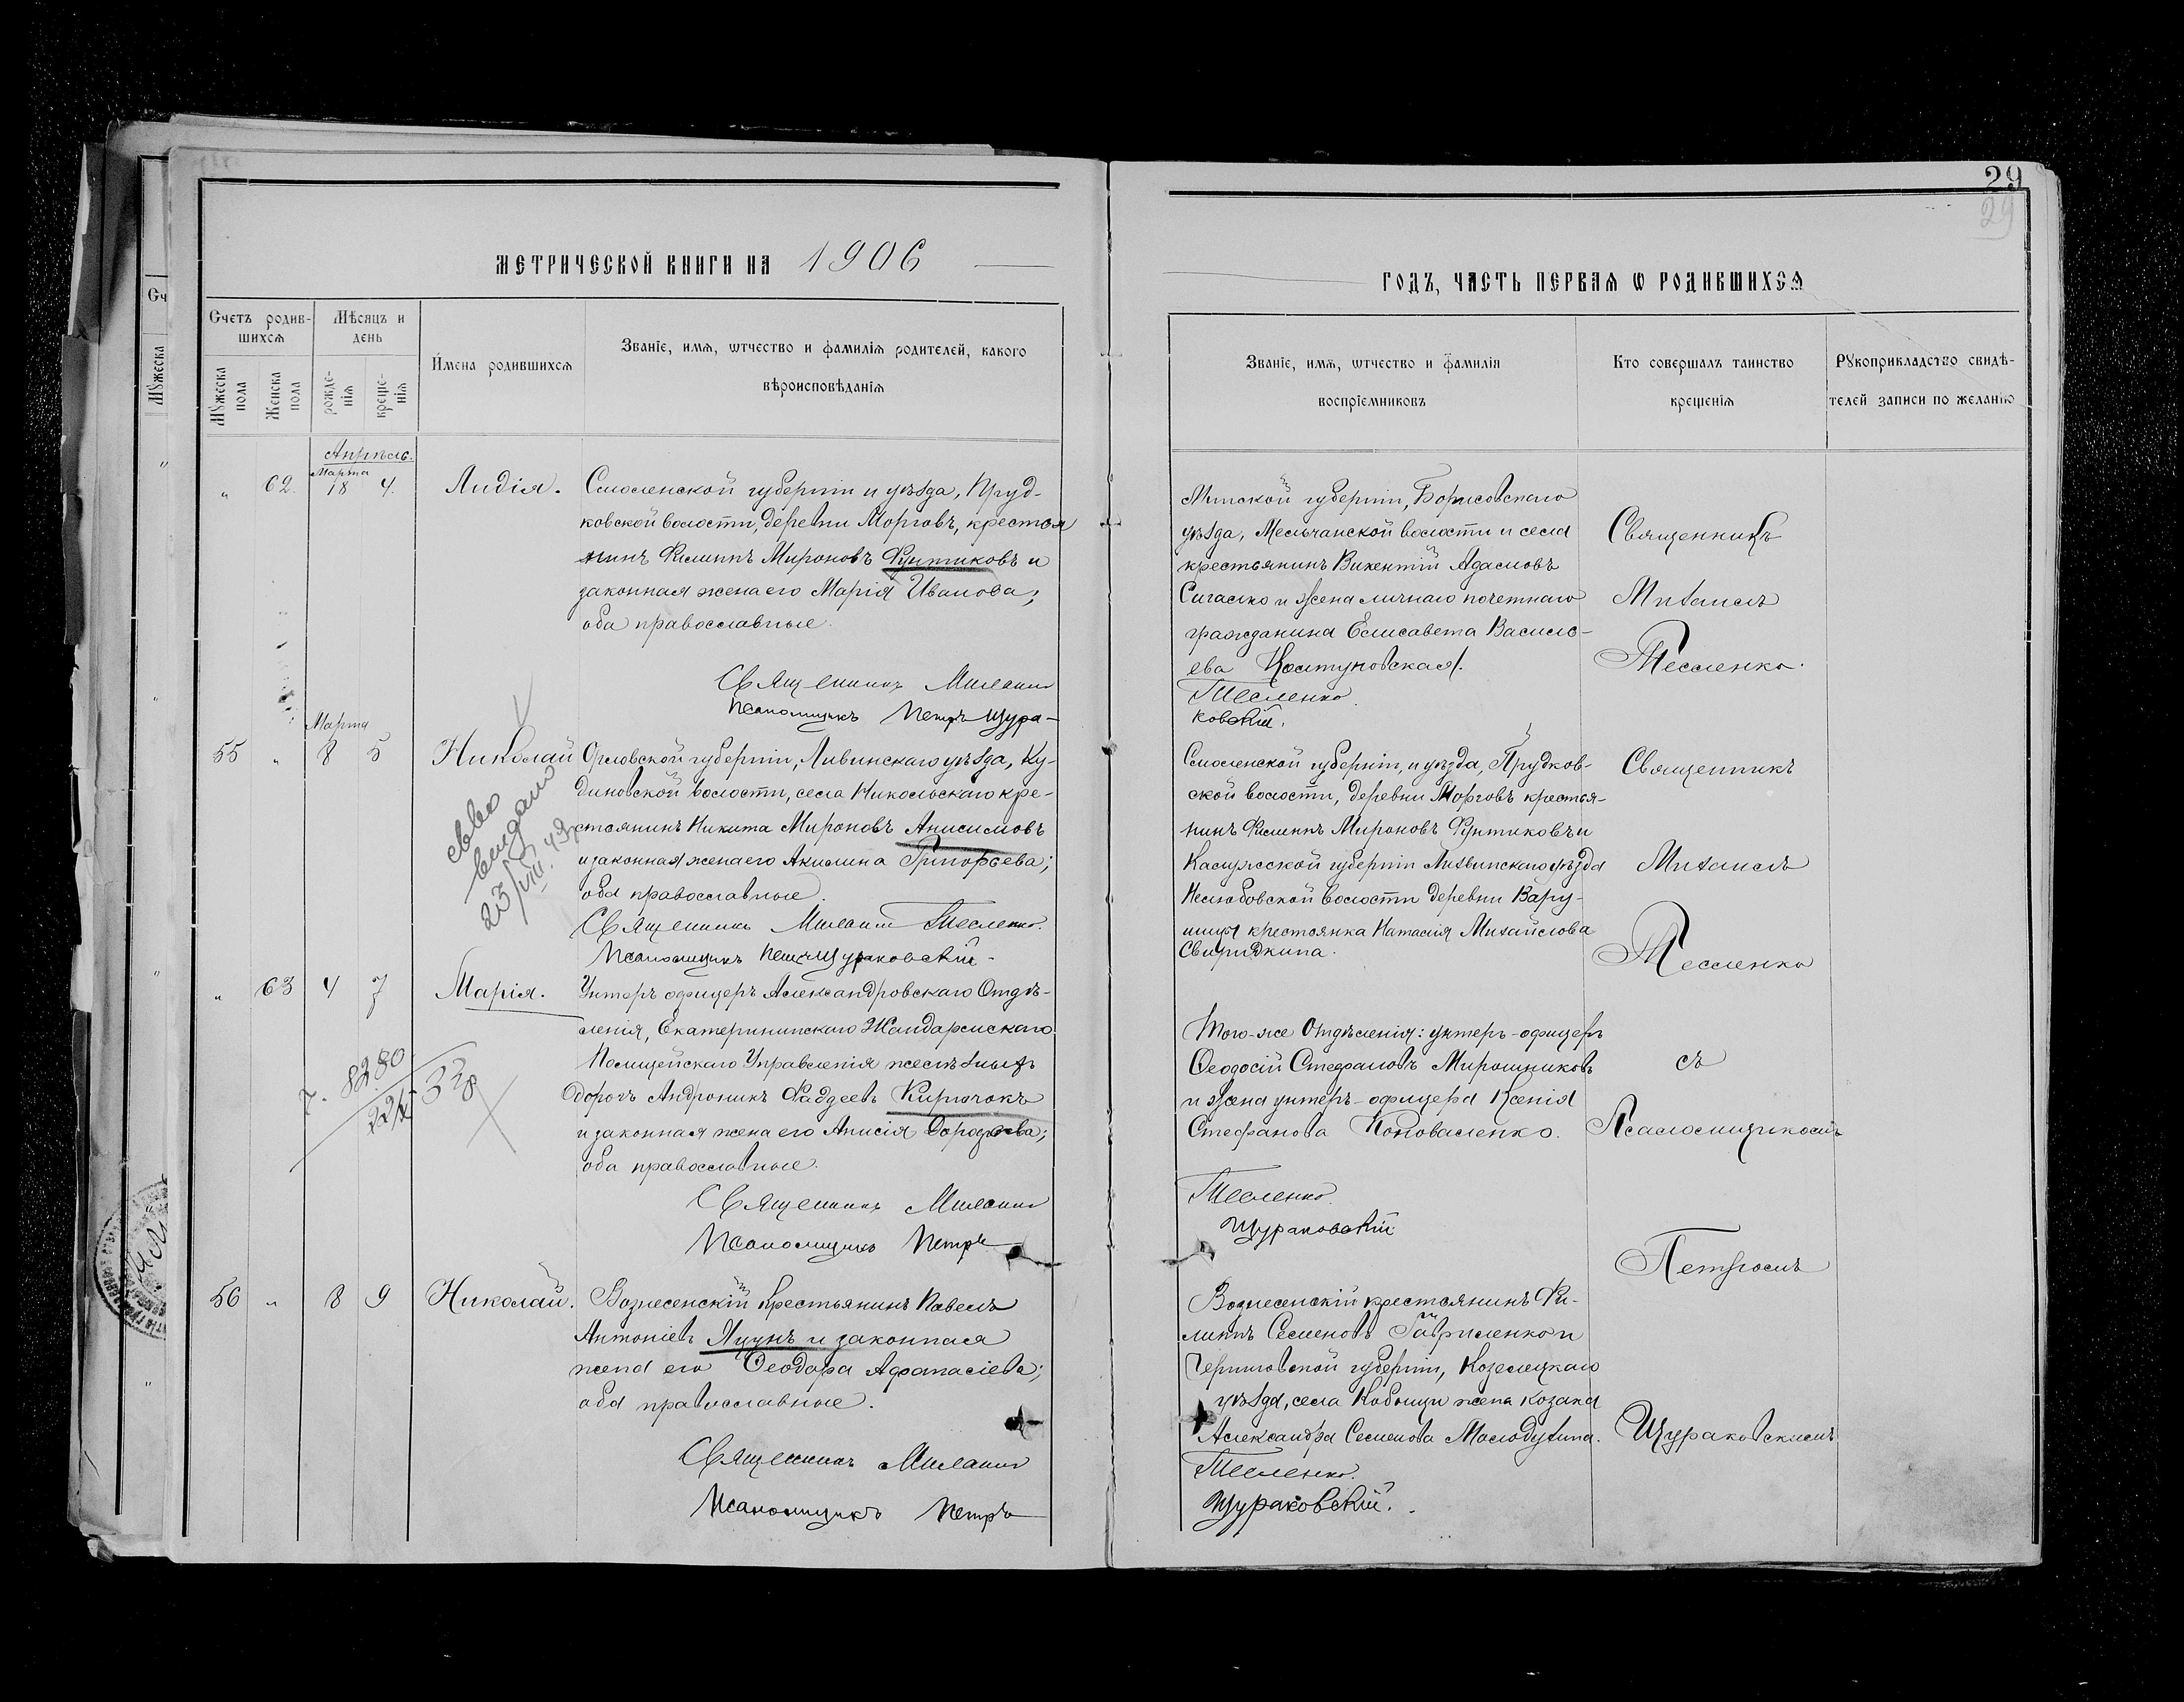 29
29
МЕТРИЧЕСКОЙ КНИГИ НА 1906
ГОДЪ, ЧАСТЬ ПЕРВАѦ Ѡ РОДИВШИХСѦ
Счетъ родив-
шихсѧ
Мѣсяцъ и
день
Мꙋжеска
пола
Женска
пола
рожде-
нїѧ
креще-
нїѧ
Имена родившихсѧ
Званїе, имѧ, ѡтчество и фамилїѧ родителей, какого
вѣроисповѣданїѧ
Званїе, имѧ, ѡтчество и фамилїѧ
воспрїемниковъ
Кто совершалъ таинство
крещенїѧ
Рꙋкоприкладство свидѣ-
телей записи по желанїю
Апрѣль.
Марта
" 62. 18 4.
Лидія.
Смоленской губерніи и уѣзда, Пруд-
ковской волости, деревни Морговъ, крестья
нинъ Филиппъ Мироновъ Фунтиковъ и
законная жена его Марія Иванова;
оба православные.
Священникъ Михаилъ
Псаломщикъ Петръ Щура-
Минской губерніи, Борисовскаго
уѣзда, волости и села
крестьянинъ Викентій Адамовъ
и жена личнаго почетнаго
гражданина Елисавета Василь-
ева
Тесленко
ковскій.
Священникъ
Михаилъ
Тесленко.
Марта
55 " 8 5
Николай
св-во
выдано
23/VIII.43г
Орловской губерніи, Ливинскаго уѣзда, Ку-
диновской волости, села Никольскаго кре-
стьянинъ Никита Мироновъ Анисимовъ
и законная жена его Акилина Григорьева;
оба православные.
Священникъ Михаилъ Тесленко.
Псаломщикъ Петръ Щураковскій.
Смоленской губерніи, и уѣзда, Прудков-
ской волости, деревни Морговъ крестья-
нинъ Филиппъ Мироновъ Фунтиковъ и
Калужской губерніи Лихвинскаго уѣзда
волости деревни
крестьянка Наталія Михайлова
Свиридкина.
Священникъ
Михаилъ
Тесленко
" 63 4 7
Марія.
8280
338
Унтеръ офицеръ Александровскаго Отдѣ-
ленія, Екатерининскаго Жандармскаго
Полицейскаго Управленія желѣзныхъ
дорогъ Андроникъ Фаддеевъ Кирючокъ
и законная жена его Анисія
оба православные.
Священникъ Михаилъ
Псаломщикъ Петръ
Того-же Отдѣленія: унтеръ-офицеръ
Ѳеодосій Стефановъ Мирошниковъ
и жена унтеръ-офицера Ксенія
Стефанова Коноваленко.
Тесленко.
Щураковскій
съ
Псаломщикомъ
Петромъ
56 " 8 9
Николай.
Вознесенскій крестьянинъ Павелъ
Антоніевъ Яцунъ и законная
жена его Ѳеодора Афанасіева;
оба православные.
Священникъ Михаилъ
Псаломщикъ Петръ
Вознесенскій крестьянинъ Фи-
липпъ Семеновъ Гавриленко и
Черниговской губерніи, Козелецкаго
уѣзда, села Кобыщи жена козака
Александра Семенова
Тесленко.
Щураковскій.
Щураковскимъ